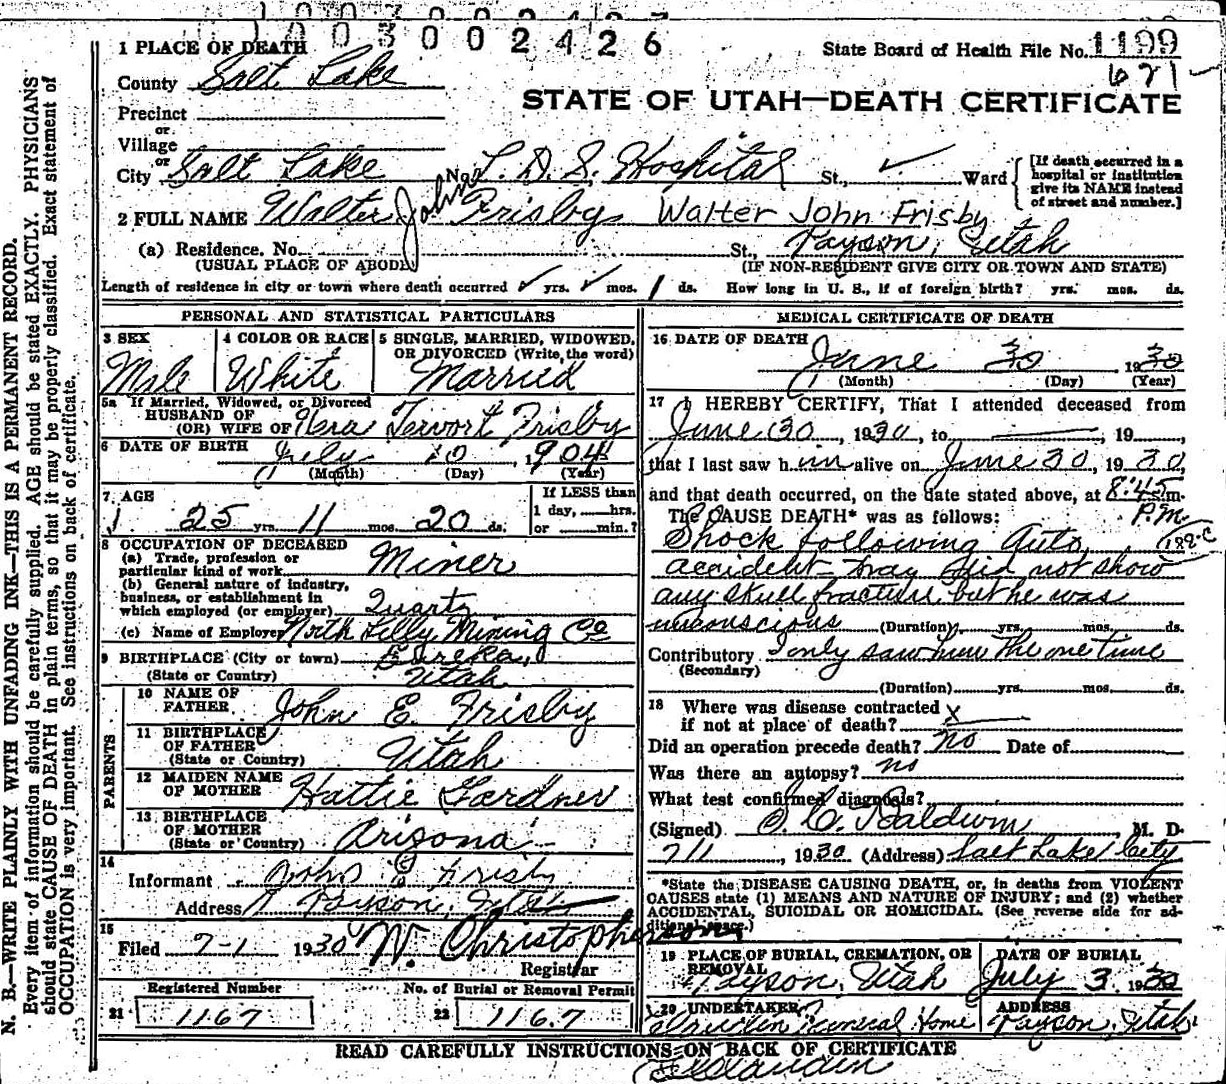 1003002426
State Board of Health File No. 1199
621
STATE OF UTAH—DEATH CERTIFICATE
1 PLACE OF DEATH
County Salt Lake
Precinct
or
Village
or
City Salt Lake No. L. D. S. Hospital St., Ward
[If death occurred in a hospital or institution give its NAME instead of street and number.]
2 FULL NAME Walter John Frisby Walter John Frisby
(a) Residence. No. St., Payson, Utah
(USUAL PLACE OF ABODE) (IF NON-RESIDENT GIVE CITY OR TOWN AND STATE)
Length of residence in city or town where death occurred yrs. mos. 1 ds. How long in U. S., if of foreign birth? yrs. mos. ds.
PERSONAL AND STATISTICAL PARTICULARS
3 SEX 4 COLOR OR RACE 5 SINGLE, MARRIED, WIDOWED, OR DIVORCED (Write the word)
Male White Married
5a If Married, Widowed, or Divorced
HUSBAND OF
(OR) WIFE OF Tervort Frisby
6 DATE OF BIRTH July 10 1904
(Month) (Day) (Year)
7 AGE If LESS than
1 day, hrs.
25 yrs. 11 mos. 20 ds. or min.?
8 OCCUPATION OF DECEASED
(a) Trade, profession or
particular kind of work Miner
(b) General nature of industry,
business, or establishment in
which employed (or employer) Quartz
(c) Name of Employer North Lilly Mining Co
9 BIRTHPLACE (City or town) Eureka,
(State or Country) Utah
PARENTS
10 NAME OF
FATHER John E. Frisby
11 BIRTHPLACE
OF FATHER
(State or Country) Utah
12 MAIDEN NAME
OF MOTHER Hattie Gardner
13 BIRTHPLACE
OF MOTHER
(State or Country) Arizona
14
Informant John E Frisby
Address Payson, Utah
15
Filed 7-1 1930 W. Christopherson
Registrar
Registered Number No. of Burial or Removal Permit
21 1167 22 1167
MEDICAL CERTIFICATE OF DEATH
16 DATE OF DEATH June 30 1930
(Month) (Day) (Year)
17 I HEREBY CERTIFY, That I attended deceased from
June 30, 1930, to , 19 ,
that I last saw him alive on June 30, 1930,
and that death occurred, on the date stated above, at 8:45 m.
P.M.
The CAUSE DEATH* was as follows:
Shock following Auto
accident - xray did not show
any skull fracture but he was
unconscious (Duration) yrs. mos. ds.
Contributory I only saw him the one time
(Secondary)
(Duration) yrs. mos. ds.
18 Where was disease contracted
if not at place of death? x
Did an operation precede death? No Date of
Was there an autopsy? no
What test confirmed diagnosis?
(Signed) Baldwin, M. D.
7/1, 1930 (Address) Salt Lake City
*State the DISEASE CAUSING DEATH, or, in deaths from VIOLENT
CAUSES state (1) MEANS AND NATURE OF INJURY; and (2) whether
ACCIDENTAL, SUICIDAL OR HOMICIDAL. (See reverse side for ad-
ditional space.)
19 PLACE OF BURIAL, CREMATION, OR DATE OF BURIAL
REMOVAL
Payson, Utah July 3 1930
20 UNDERTAKER ADDRESS
Funeral Home Payson, Utah
READ CAREFULLY INSTRUCTIONS ON BACK OF CERTIFICATE
N. B.—WRITE PLAINLY WITH UNFADING INK—THIS IS A PERMANENT RECORD.
Every item of information should be carefully supplied. AGE should be stated EXACTLY. PHYSICIANS
should state CAUSE OF DEATH in plain terms, so that it may be properly classified. Exact statement of
OCCUPATION is very important. See instructions on back of certificate.